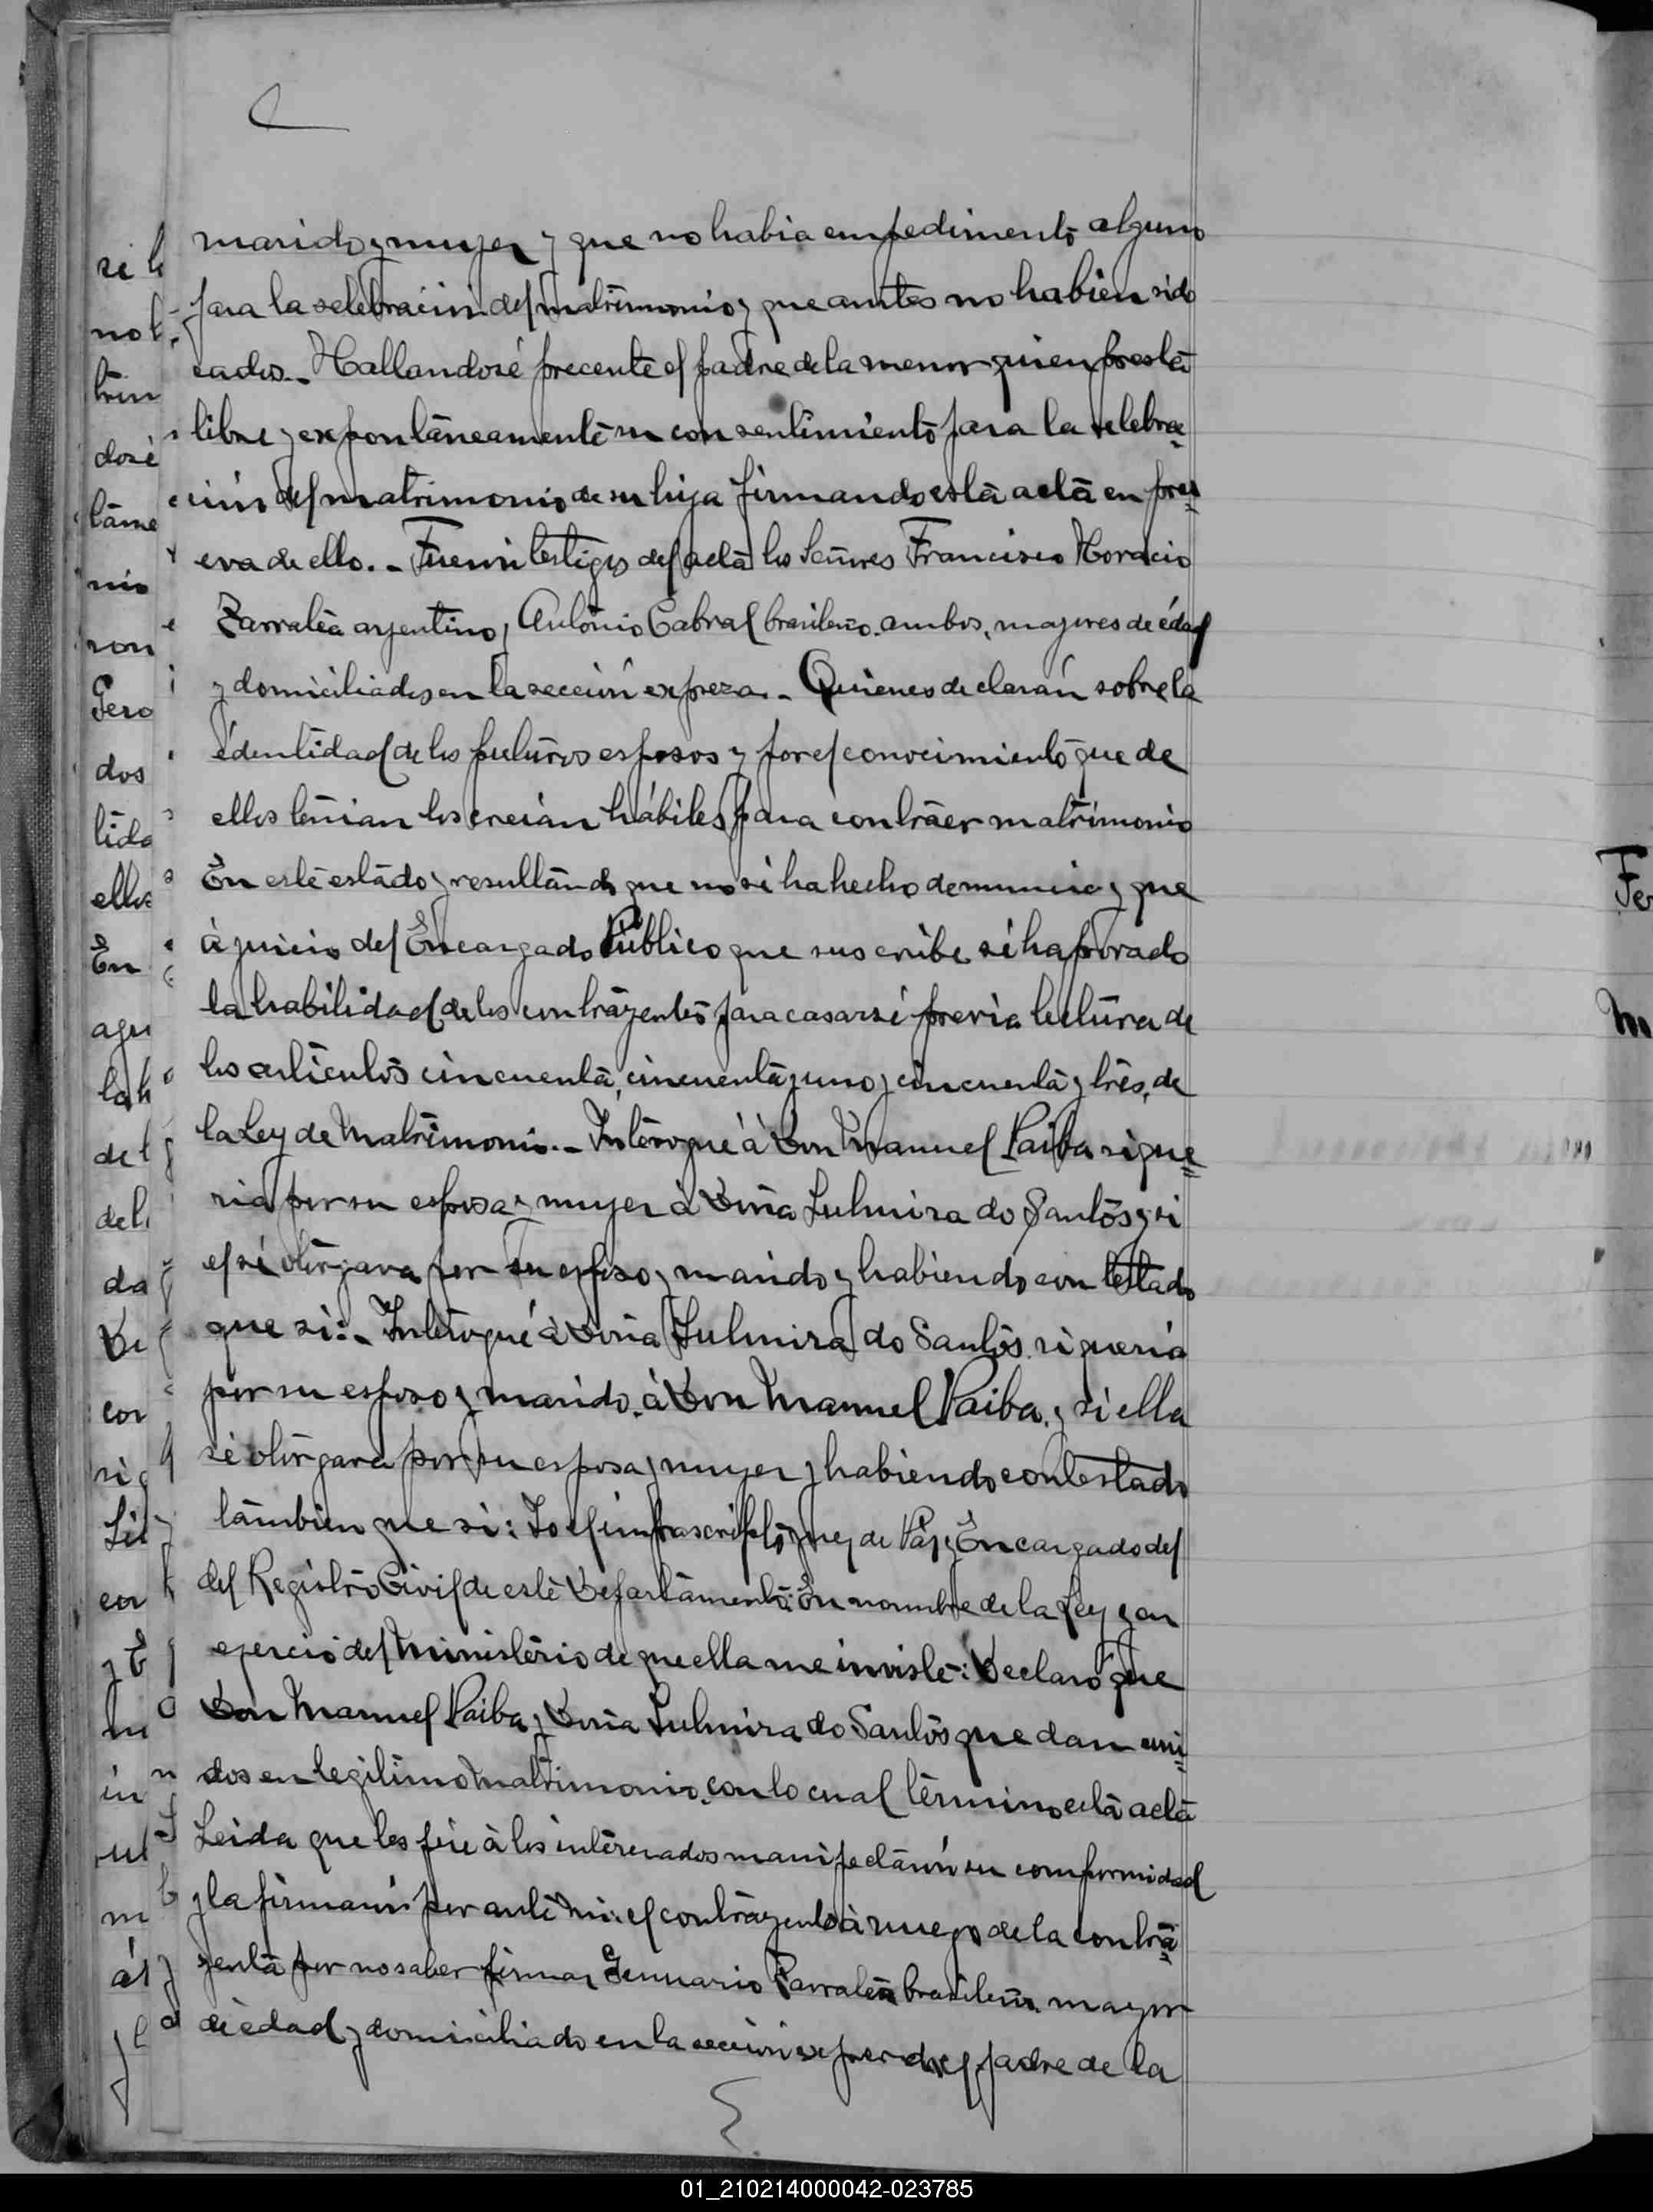 marido y muger y que no habia empedimento alguno
para la selebracion del matrimonio y que antes no habien sido
cados.- Hallandosé precente el padre de la menor quien presta
libre y expontáneamente su consentimiento para la selebra=
cion del matrimonio de su hija firmando esta acta en pru=
eva de ello.- Fueron testigos del acta los Señores Francisco Horacio
Zarratea argentino, Antonio Cabral brasilero ambos, mayores de édad
y domiciliados en la sección expreza.- Quienes declarán sobre la
édentidad de los futuros esposos y por el conocimiento que de
ellos tenian los creian hábiles para contraer matrimonio
En este estado y resultando que no se ha hecho denuncia y que
à juicio del Encargado Público que suscribe se ha provado
la habilidad de los contrayentes para casarse previa lectura de
los articulos cincuenta, cincuenta y uno y cincuenta y tres, de
la Ley de Matrimonio.- Interogué à Don Manuel Paiba si que=
ria por su esposa y muger à Doña Lulmira do Santos y si
el se otorgava por su esposo y marido y habiendo contestado
que si:- Interogué à Doña Lulmira do Santos si queria
por su esposo y marido à Don Manuel Paiba, y si ella
se otorgava por su esposa y muger y habiendo contestado
tambien que si: Yo el infrascripto Juez de Paz y Encargado del
del Registro Civil de este Departamento: En nombre de la Ley y en
ejercio del Ministerio de que ella me inviste: Declaro que
Don Manuel Paiba y Doña Lulmira do Santos quedan uni=
dos en legitimo matrimonio, con lo cual termino esta acta
Leida que les fue à los interesados manifestaron su comformidad
y la firmaron por ante mi: el contrayente à ruego de la contra=
yenta por no saber firmar Genuario Zarratea brasilero mayor
de édad y domiciliado en la seccion expresada el padre de la
si
no
trin
dosé
táne
nio
ron
Gero
dos
tida
ellos
En
aju
la h
de l
del
da
De
con
si q
Lul
con
y E